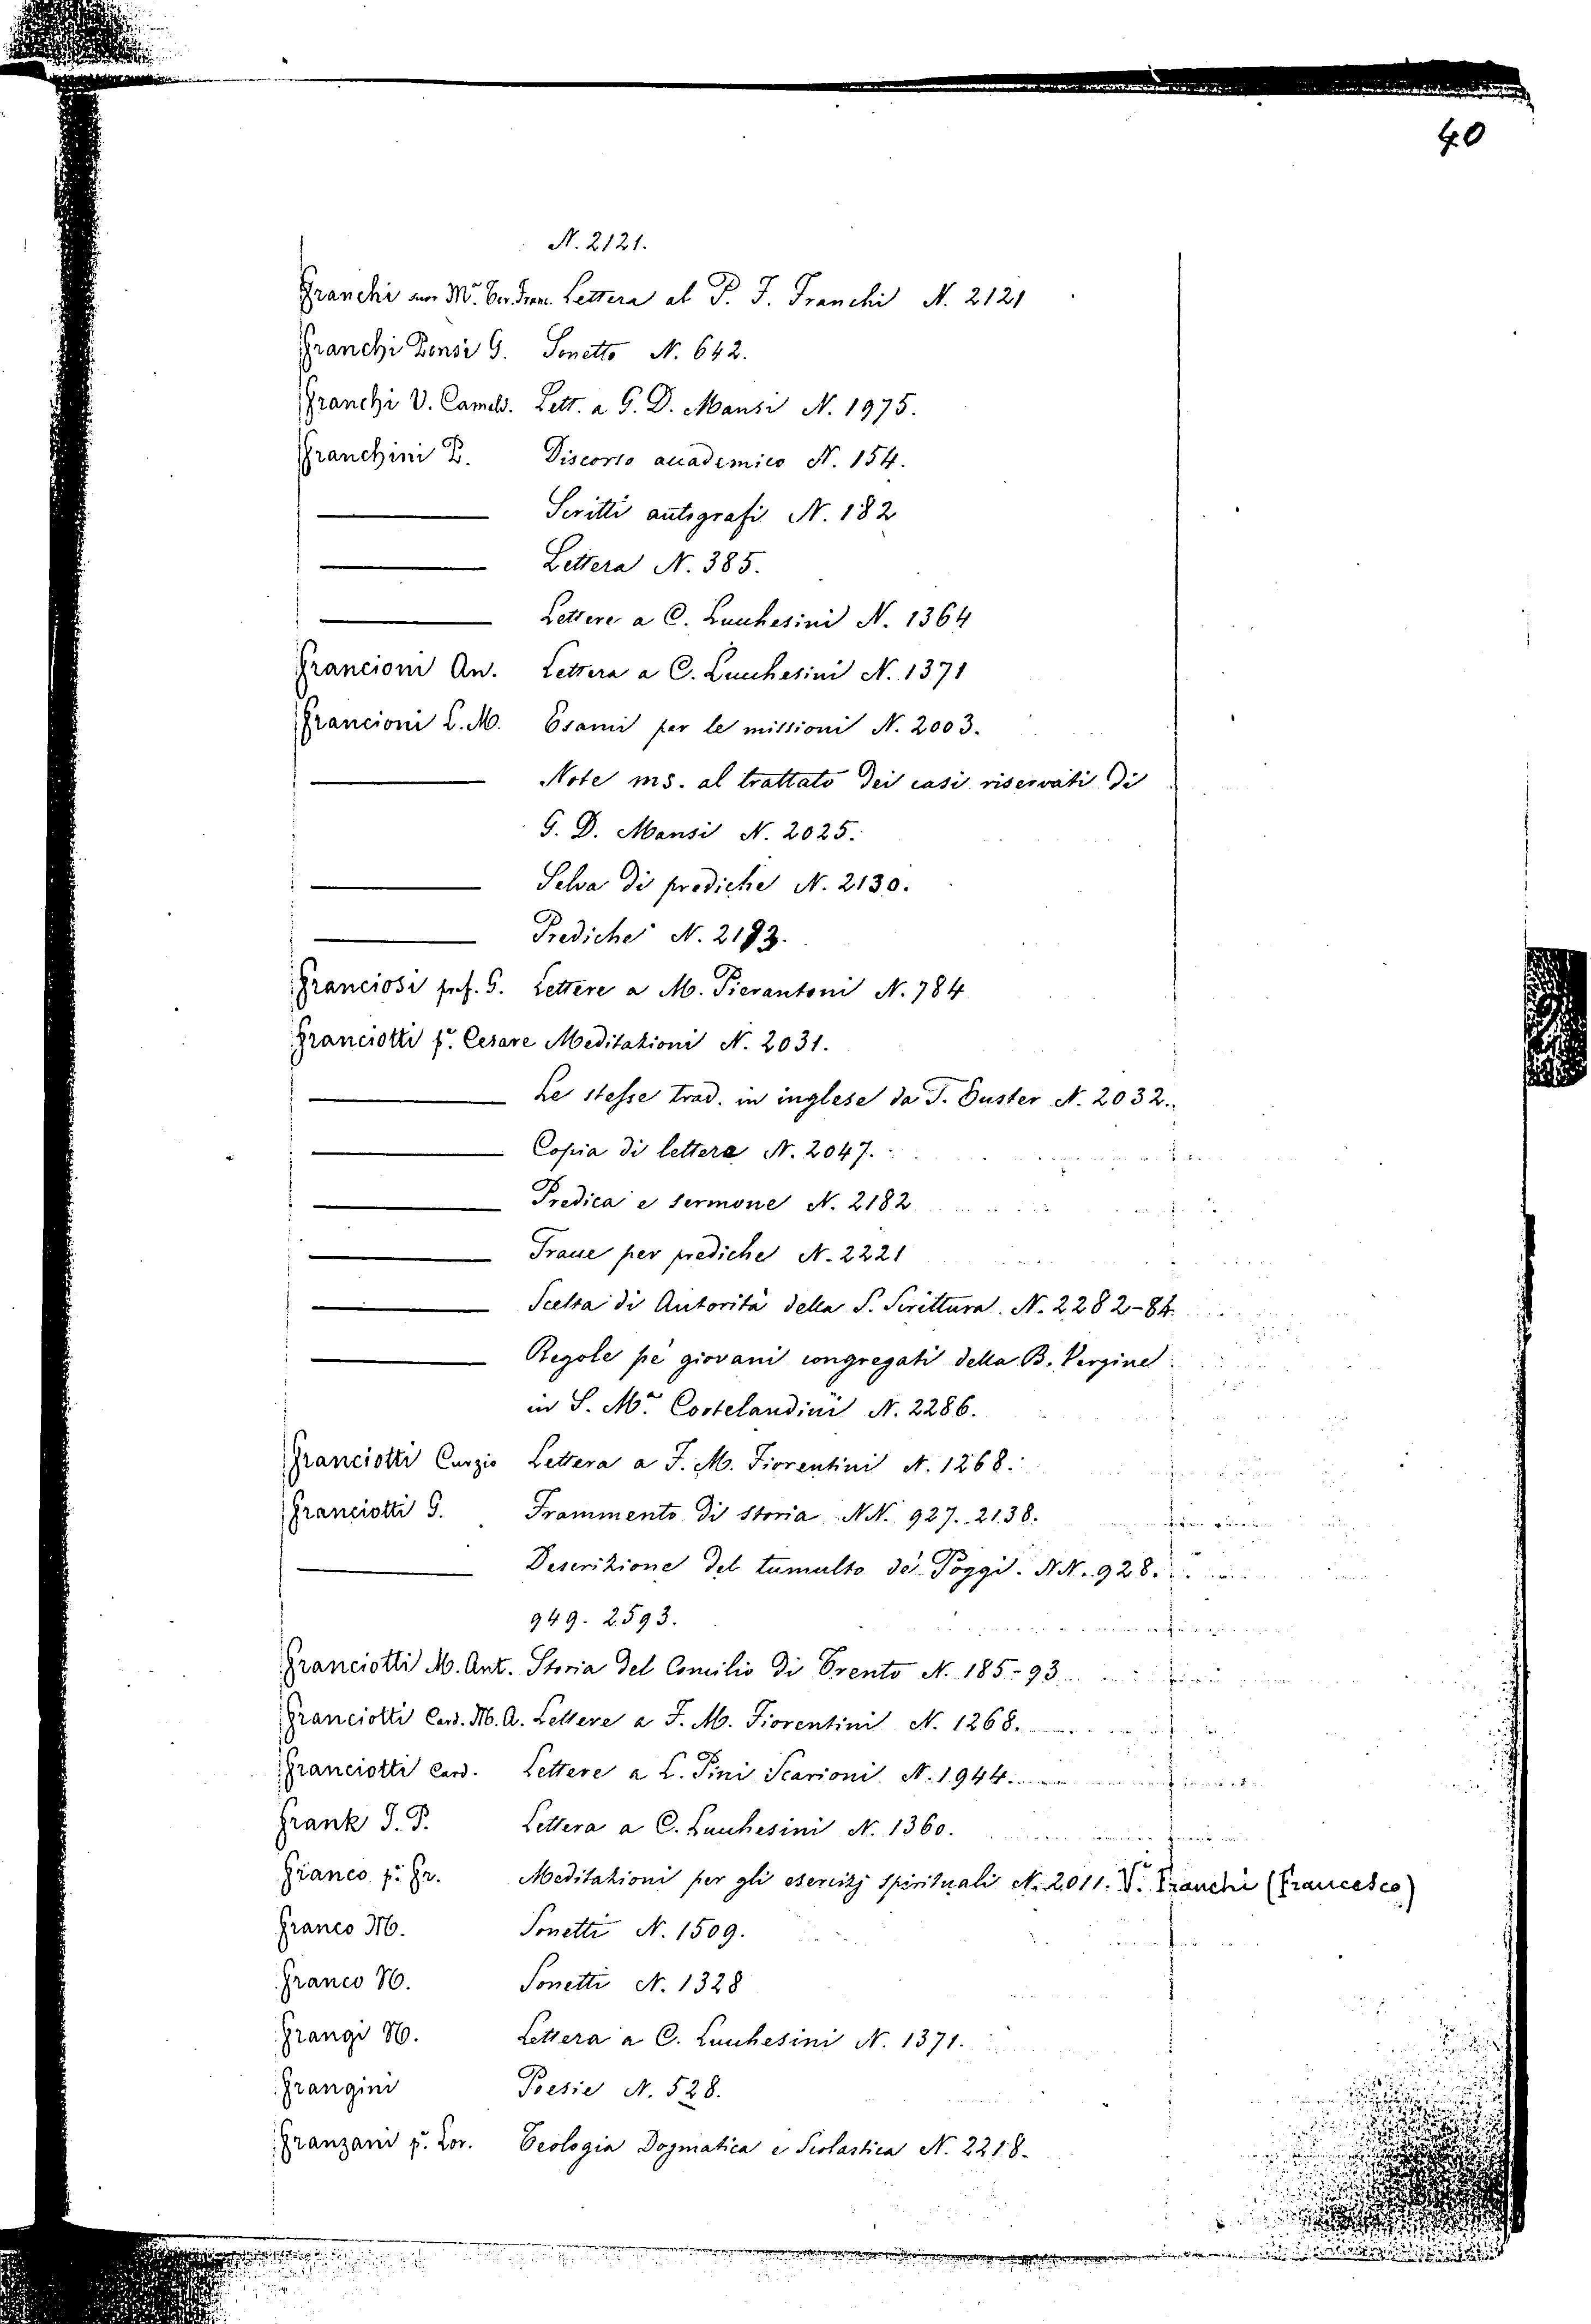 40
N. 2121.
Franchi suor Mª. Ger. Fran. Lettera al P. F. Franchi N. 2121
Franchi Zensi G. Sonetto N. 642.
Franchi V. Camald. Lett. a G. D. Mansi N. 1975.
Franchini B. Discorso accademico N. 154.
——— Scritti autografi N. 182
——— Lettera N. 385.
——— Lettere a C. Lucchesini N. 1364
Francioni An. Lettera a C. Lucchesini N. 1371
Francioni L. M. Esami per le missioni N. 2003.
——— Note ms. al trattato dei casi riservati di
G. D. Mansi N. 2025.
——— Selva di prediche N. 2130.
——— Prediche N. 2193.
Franciosi prof. G. Lettere a M. Pierantoni N. 784
Franciotti p. Cesare Meditazioni N. 2031.
——— Le stesse trad. in inglese da T. Euster N. 2032.
——— Copia di lettera N. 2047.
——— Predica e sermone N. 2182
——— Tracce per prediche N. 2221
——— Scelta di Autorità della S. Scrittura N. 2282-84.
——— Regole pe' giovani congregati della B. Vergine
in S. Mª. Cortelandini N. 2286.
Franciotti Curzio Lettera a F. M. Fiorentini N. 1268.
Franciotti G. Frammento di storia NN. 927. 2138.
——— Descrizione del tumulto de' Poggi. NN. 928.
949. 2593.
Franciotti M. Ant. Storia del Concilio di Trento N. 185-93
Franciotti Card. M. A. Lettere a F. M. Fiorentini N. 1268.
Franciotti Card. Lettere a L. Pini Scarioni N. 1944.
Frank J. P. Lettera a C. Lucchesini N. 1360.
Franco p. Fr. Meditazioni per gli esercizj spirituali N. 2011. V. Franchi (Francesco)
Franco M. Sonetti N. 1509.
Franco N. Sonetti N. 1328
Frangi N. Lettera a C. Lucchesini N. 1371.
Frangini Poesie N. 528.
Franzani p. Lor. Teologia Dogmatica e Scolastica N. 2218.